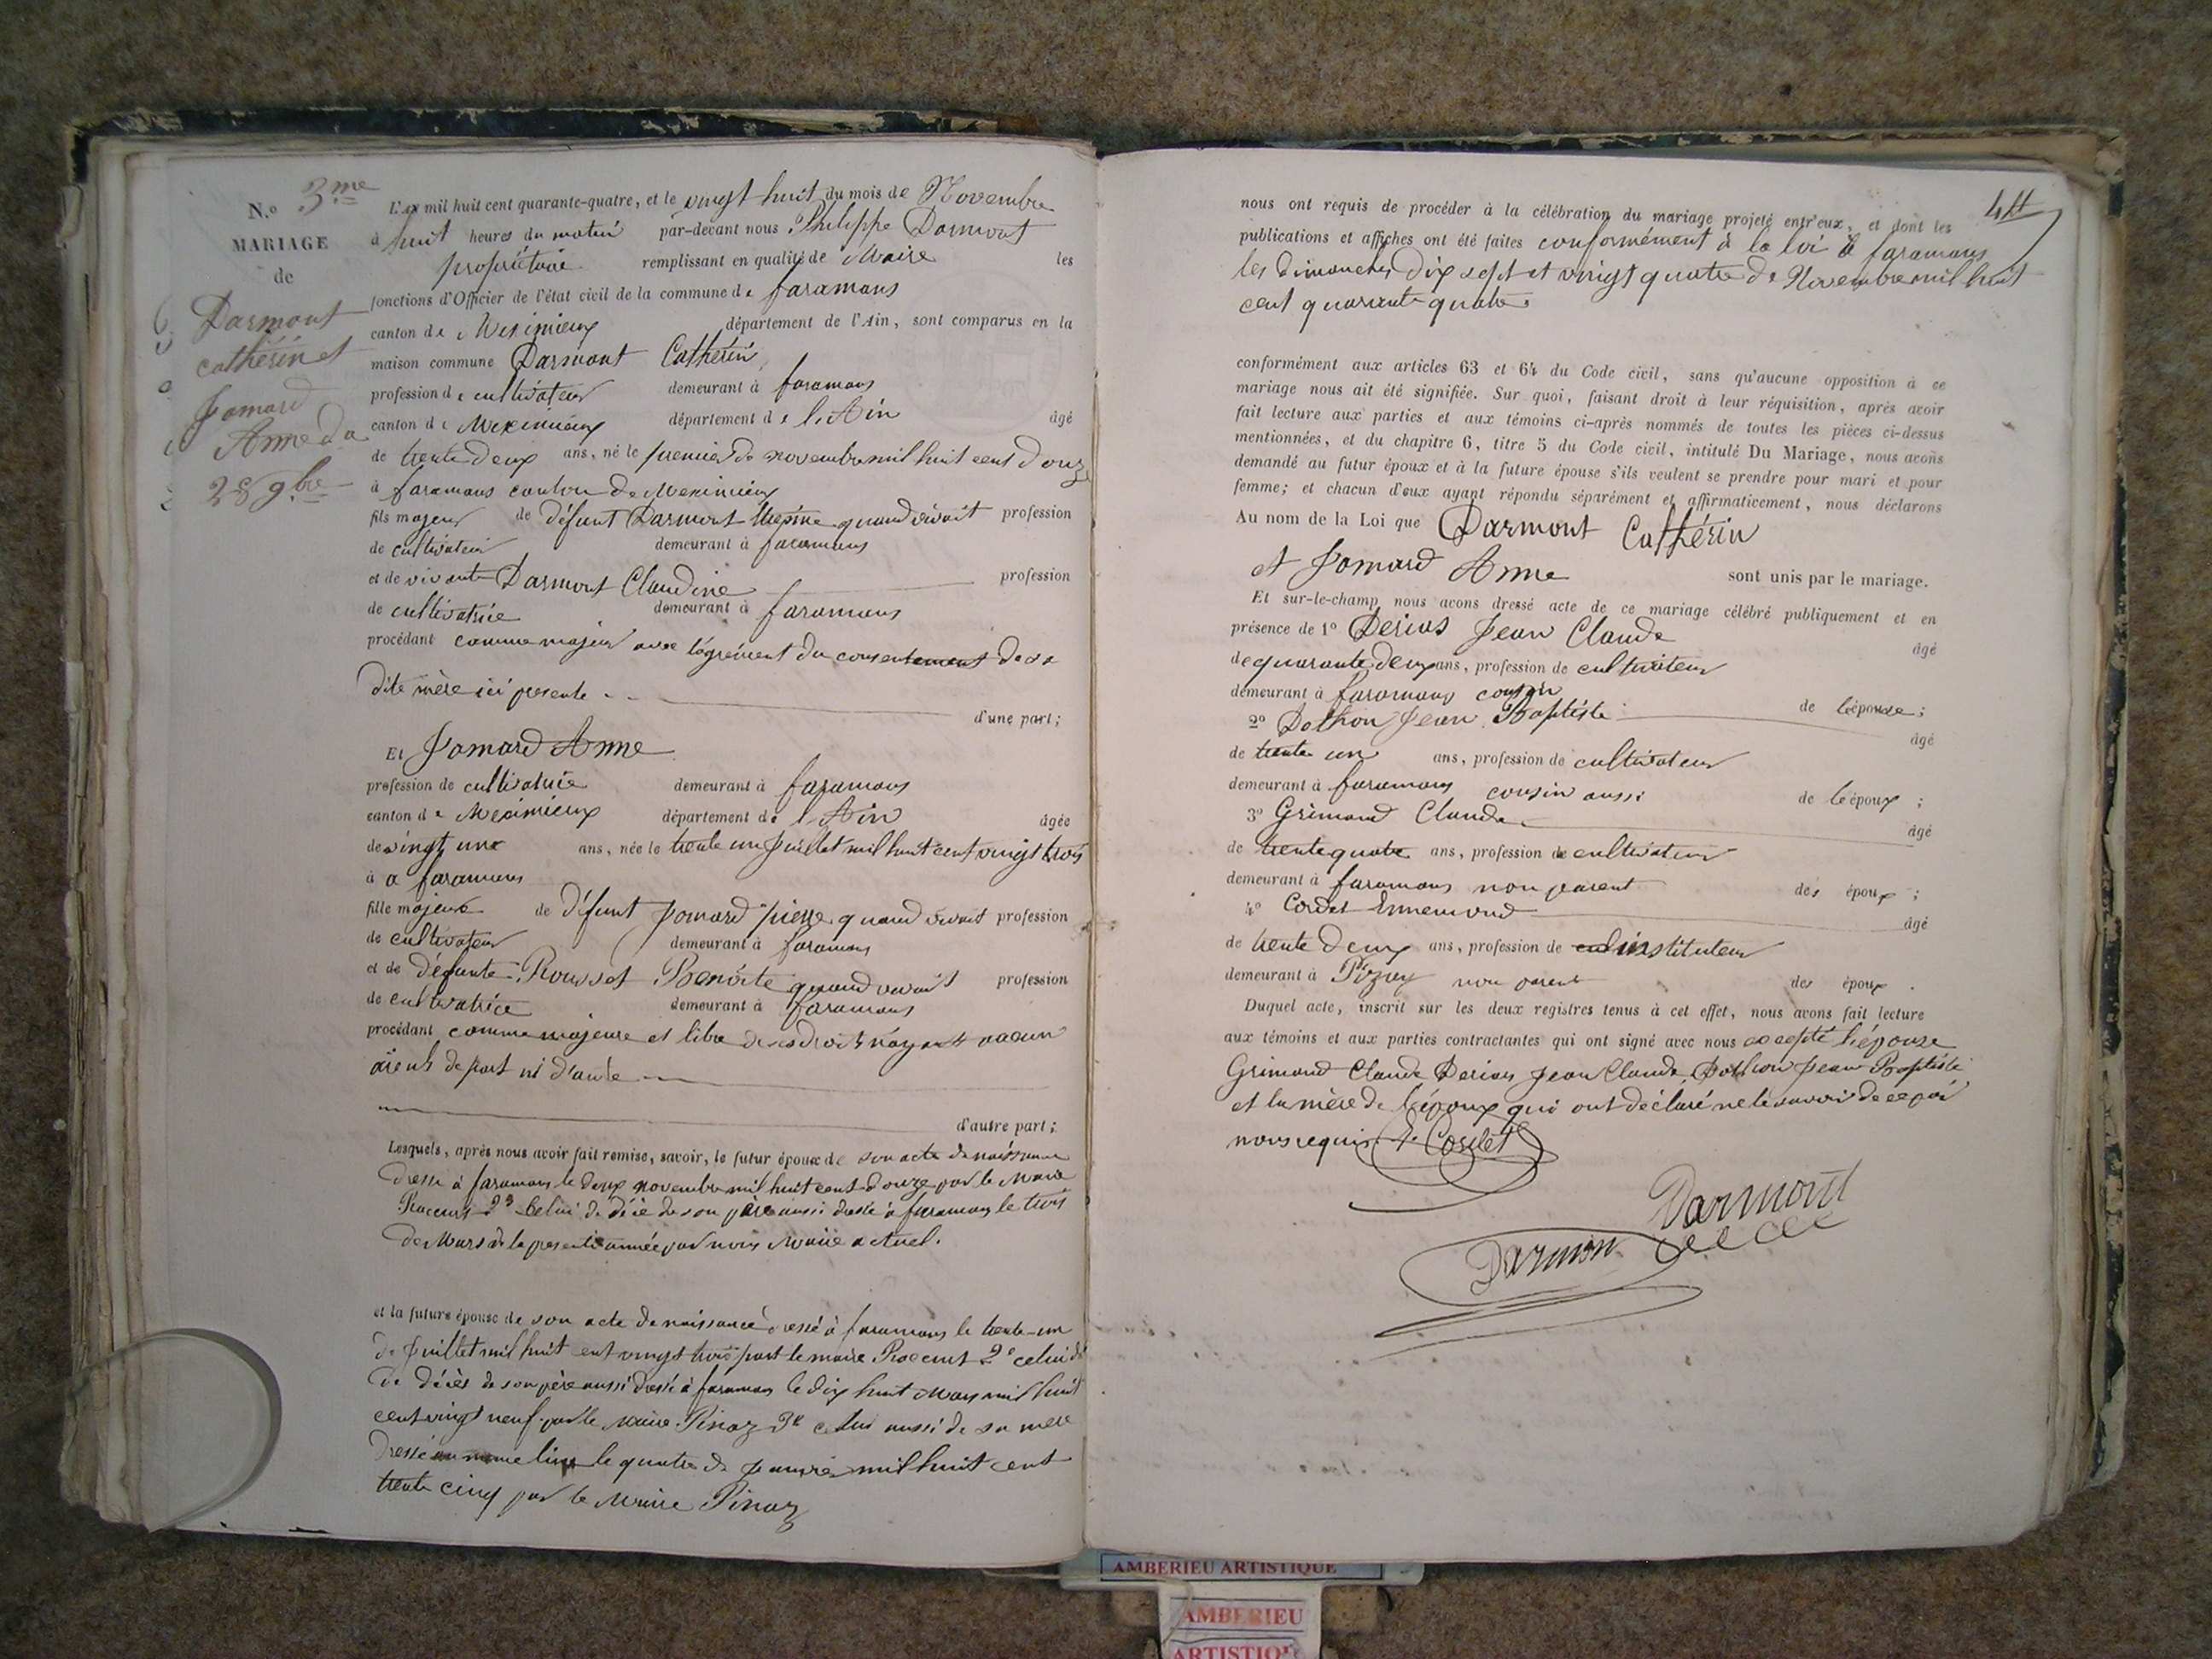 N.o 3me
MARIAGE
de
Darmont
cathérin et
Jomard
Anne du
28 9bre
L'an mil huit cent quarante-quatre, et le vingt huit du mois de Novembre
à huit heures du matin par-devant nous Philippe Darmont
propriétaire remplissant en qualité de Maire les
fonctions d'Officier de l'état civil de la commune de faramans
canton de Meximieux département de l'Ain, sont comparus en la
maison commune Darmont Cathérin,
profession de cultivateur demeurant à faramans
canton de Meximieux département de l'Ain âgé
de trente deux ans, né le premier de novembre mil huit cent douze
à faramans canton de Meximieux
fils majeur de défunt Darmont quand vivait profession
de cultivateur demeurant à faramans
et de vivante Darmont Claudine profession
de cultivatrice demeurant à faramans
procédant comme majeur avec l'agrément du consentement de sa
dite mère ici presente
d'une part;
Et Jomard Anne
profession de cultivatrice demeurant à faramans
canton de Meximieux département de l'Ain âgée
de vingt une ans, née le trente un Juillet mil huit cent vingt trois
à a faramans
fille majeure de défunt Jomard pierre quand vivait profession
de cultivateur demeurant à faramans
et de défunte Rousset Benoite quand vivait profession
de cultivatrice demeurant à faramans
procédant comme majeure et libre de ses droits n'ayant aucun
aieuls de part ni d'autre
d'autre part;
Lesquels, après nous avoir fait remise, savoir, le futur époux de son acte de naissance
dressé à faramans le deux novembre mil huit cent douze par le Maire
2º Celui de décè de son père aussi dressé à faramans le trois
de Mars de la presente année par nous Maire actuel.
et la future épouse de son acte de naissance dressé à faramans le trente-un
de Juillet mil huit cent vingt trois par le maire 2º celui de
de décès de son père aussi dressé à faramans le dix huit Mars mil huit
cent vingt neuf par le maire Pinaz 3º celui aussi de sa mère
dressé au même lieu le quatre de Janvier mil huit cent
trente cinq par le Maire Pinaz
44
nous ont requis de procéder à la célébration du mariage projeté entr'eux, et dont les
publications et affiches ont été faites conformément à la loi à faramans
les dimanches dix sept et vingt quatre de Novembre mil huit
cent quarante quatre
conformément aux articles 63 et 64 du Code civil, sans qu'aucune opposition à ce
mariage nous ait été signifiée. Sur quoi, faisant droit à leur réquisition, après avoir
fait lecture aux parties et aux témoins ci-après nommés de toutes les pièces ci-dessus
mentionnées, et du chapitre 6, titre 5 du Code civil, intitulé Du Mariage, nous avons
demandé au futur époux et à la future épouse s'ils veulent se prendre pour mari et pour
femme; et chacun d'eux ayant répondu séparément et affirmativement, nous déclarons
Au nom de la Loi que Darmont Cathérin
et Jomard Anne sont unis par le mariage.
Et sur-le-champ nous avons dressé acte de ce mariage célébré publiquement et en
présence de 1º Derias Jean Claude âgé
de quarante deux ans, profession de cultivateur
demeurant à faramans cousin de l'épouse;
2º Dothon Jean Baptiste âgé
de trente un ans, profession de cultivateur
demeurant à faramans cousin aussi de l'époux;
3º Grimand Claude âgé
de trente quatre ans, profession de cultivateur
demeurant à faramans non parent des époux;
4º Cordet Ennemond âgé
de trente deux ans, profession de instituteur
demeurant à Pizay non parent des époux.
Duquel acte, inscrit sur les deux registres tenus à cet effet, nous avons fait lecture
aux témoins et aux parties contractantes qui ont signé avec nous excepté l'épouse
Grimand Claude Derias Jean Claude, Dothon Jean Baptiste
et la mère de l'époux qui ont déclaré ne le savoir de ce par
nous requis E. Cordet
Darmont
Darmon
AMBERIEU ARTISTIQUE
AMBERIEU
ARTISTIQU